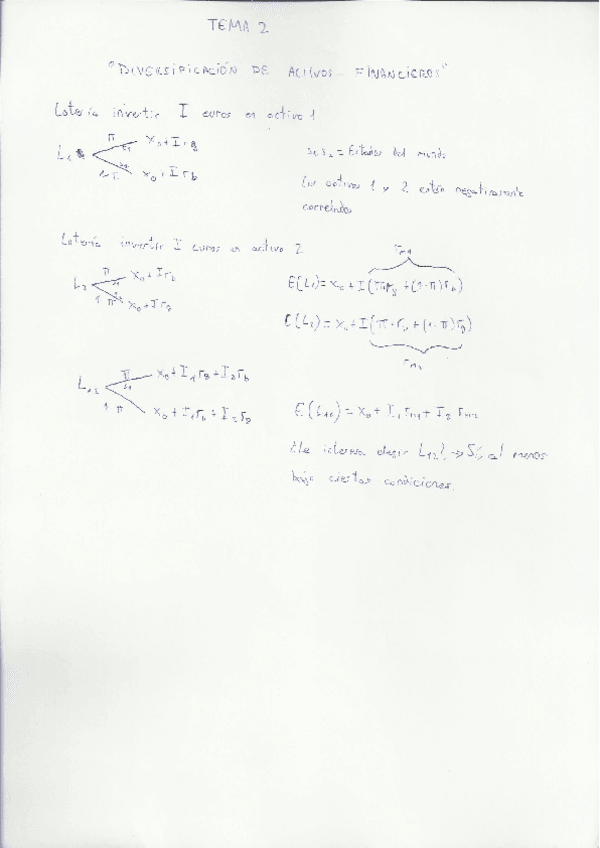 TEMA 2
"DIVERSIFICACIÓN DE ACTIVOS FINANCIEROS"
Lotería invertir I euros en activo 1
L1
π s1 x0 + I rg
1-π s2 x0 + I rb
s1 s2 = Estados del mundo
Los activos 1 y 2 están negativamente
correlados
Lotería invertir I euros en activo 2
L2
π s1 x0 + I rb
1-π s2 x0 + I rg
rm1
E(L1) = x0 + I(π rg + (1-π) rb)
E(L2) = x0 + I(π · rb + (1-π) rg)
rm2
L12
π s1 x0 + I1 rg + I2 rb
1-π x0 + I1 rb + I2 rg
E(L12) = x0 + I1 rM1 + I2 rM2
¿Le interesa elegir L12? → Sí, al menos
bajo ciertas condiciones.